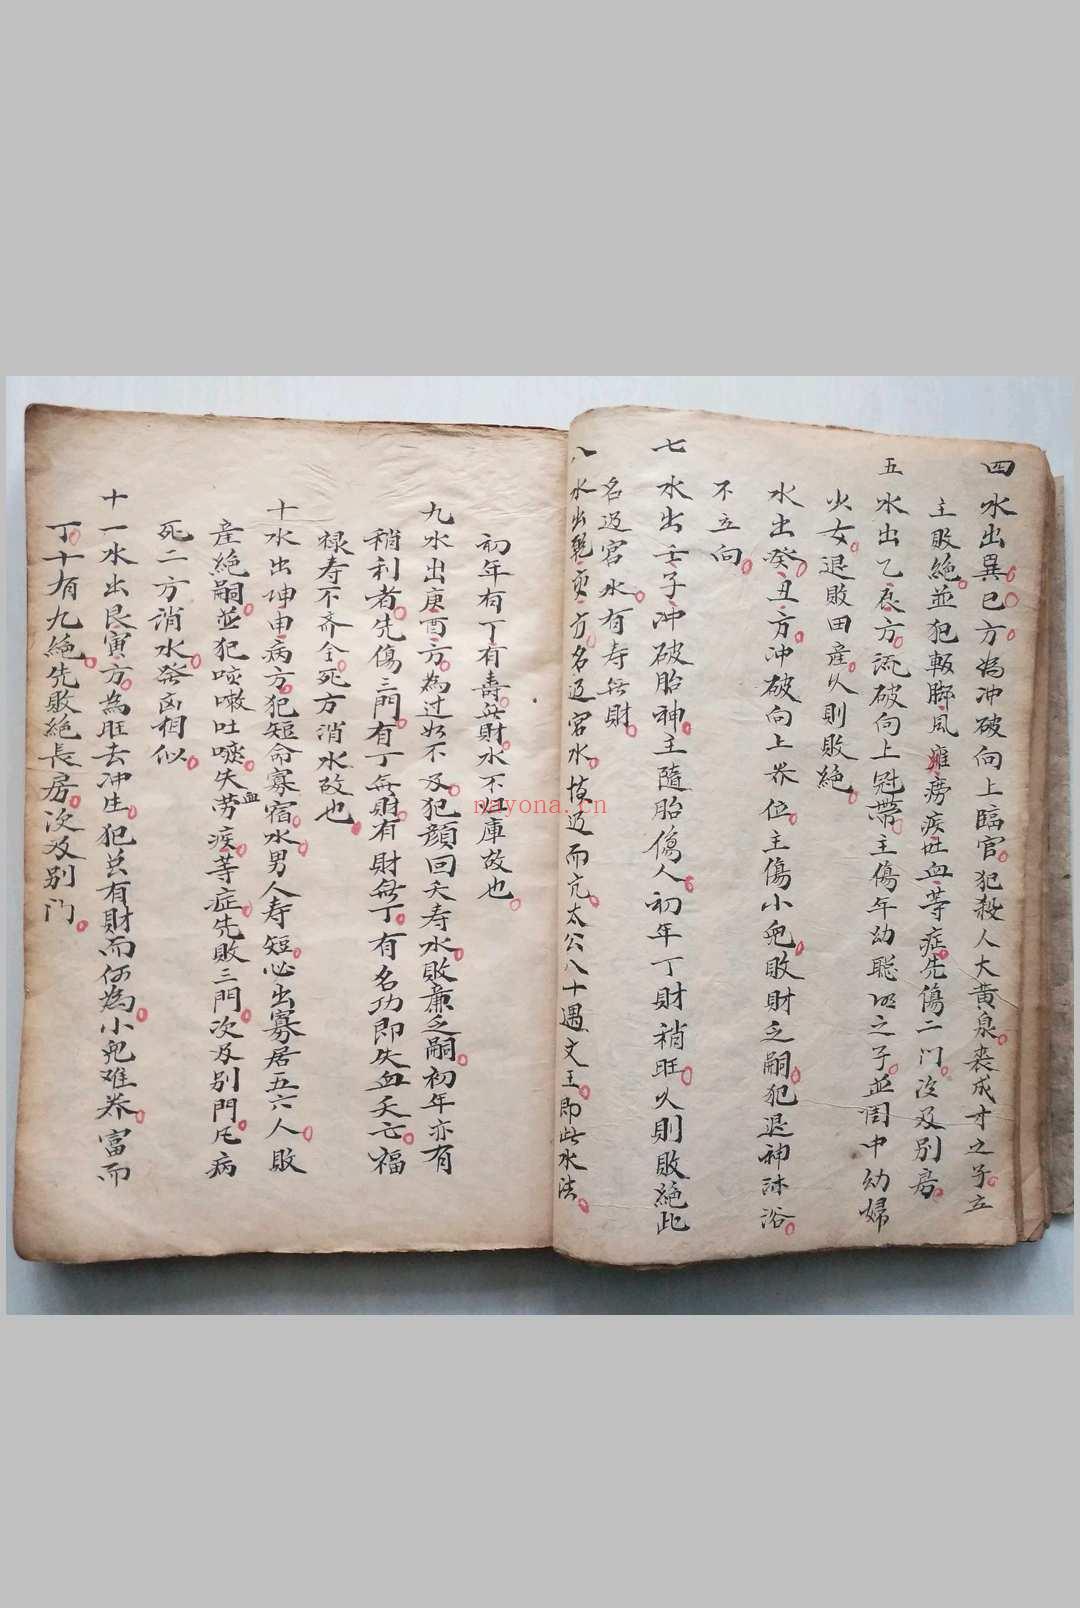 四 水出巽巳方為冲破向上臨官犯殺人大黄泉丧成才之子立
主敗絶並犯軟脚風瘫痨疾吐血等症先傷二门次及别房
五 水出乙辰方流破向上冠帶主傷年幼聪明之子並闺中幼婦
少女退敗田産久則敗絶
水出癸丑方冲破向上养位主傷小兒敗財乏嗣犯退神沐浴
不立向
七 水出壬子冲破胎神主隨胎傷人初年丁財稍旺久則敗絶此
名过宫水有寿無財
八 水出乾亥方名过宫水情过而亢太公八十遇文王即此水法
初年有丁有壽無財水不归庫故也
九水出庚酉方為过如不及犯顔回夭寿水敗産乏嗣初年亦有
稍利者先傷三門有丁無財有財無丁有名功即失血夭亡福
禄寿不齐全死方消水故也
十水出坤申病方犯短命寡宿水男人寿短必出寡居五六人敗
産絶嗣並犯咳嗽吐痰失血劳疾等症先敗三門次及别門凡病
死二方消水發凶相似
十一水出艮寅方為旺去冲生犯总有財而何為小兒难养富而
丁十有九絶先敗絶長房次及别门
nayona.cn